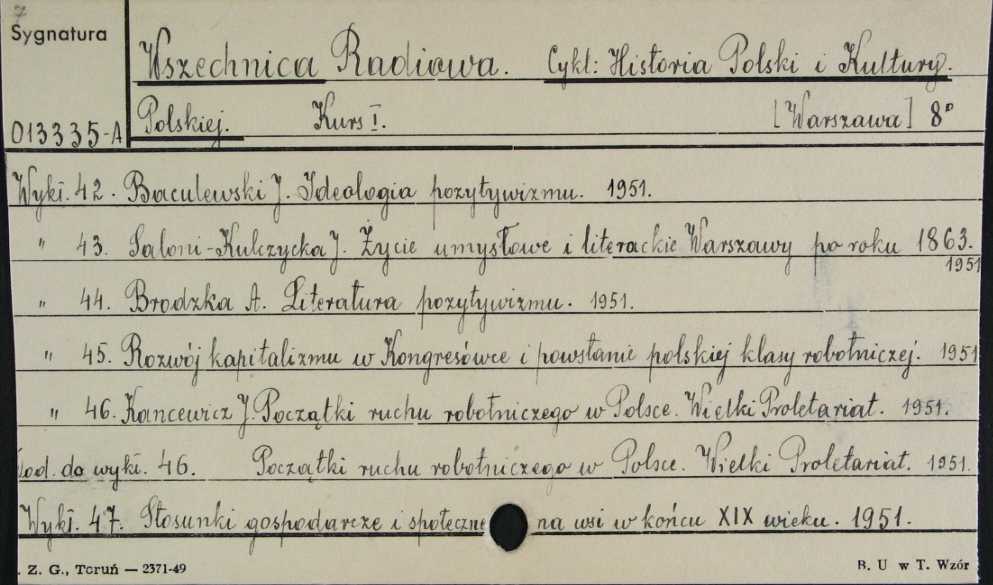 7
Sygnatura
Wszechnica Radiowa. Cykl: Historia Polski i Kultury.
Polskiej. Kurs I. [Warszawa] 8°
013335-A
Wykł. 42. Baculewski J. Ideologia pozytywizmu. 1951.
" 43. Saloni-Kulczycka J. Życie umysłowe i literackie Warszawy po roku 1863.
1951
" 44. Brodzka A. Literatura pozytywizmu. 1951.
" 45. Rozwój kapitalizmu w Kongresówce i powstanie polskiej klasy robotniczej. 1951
" 46. Kancewicz J. Początki ruchu robotniczego w Polsce. Wielki Proletariat. 1951.
Dod. do wykł. 46. Początki ruchu robotniczego w Polsce. Wielki Proletariat. 1951.
Wykł. 47. Stosunki gospodarcze i społeczne na wsi w końcu XIX wieku. 1951.
. Z. G., Toruń — 2371-49 B. U w T. Wzór